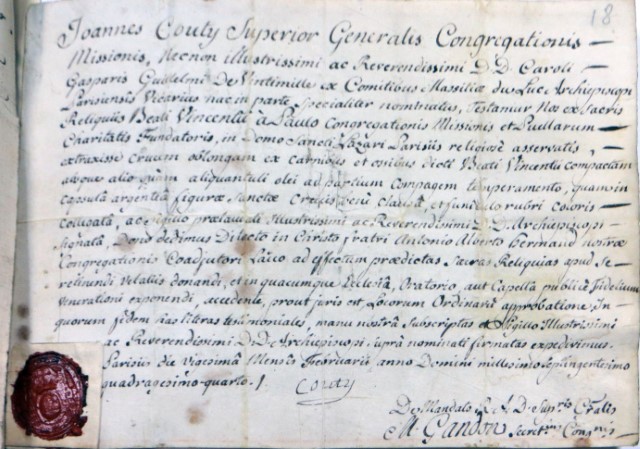 18
Joannes Couty Superior Generalis Congregationis
Missionis, Necnon illustrissimi ac Reverendissimi D.D. Caroli
Gasparis Guillelmi De Vintimille ex Comitibus Massiliæ du Luc Archiepiscopi
Parisiensis Vicarius hac in parte specialiter nominatus, Testamur Nos ex sacris
Reliquiis Beati Vincentii à Paulo Congregationis Missionis et Puellarum
Charitatis Fundatoris, in Domo Sancti Lazari Parisiis religiosè asservatis,
extraxisse crucem oblongam ex carnibus et ossibus dicti Beati Vincentii compactam
atque alio quam aliquantuli olei ad partium compagem temperamento, quam in
capsulâ argenteâ figuræ Sanctæ Crucis benè clausâ, et funiculo rubri coloris
colligatâ, ac sigillo prælaudati Illustrissimi ac Reverendissimi D.D. Archiepiscopi
signatâ, dono dedimus Dilecto in Christo fratri Antonio Alberto Bermand nostræ
Congregationis Coadjutori Laico ad effectum prædictas Sacras Reliquias apud se
retinendi vel aliis donandi, et in quacumque Ecclesiâ, Oratorio aut Capellâ publicæ Fidelium
Venerationi exponendi, accedente, prout juris est, Locorum Ordinarii approbatione. In
quorum fidem has literas testimoniales, manu nostrâ subscriptas et sigillo Illustrissimi
ac Reverendissimi D.D. Archiepiscopi suprà nominati firmatas expedivimus.
Parisiis die vigesimâ Mensis Februarii anno Domini millesimo septingentesimo
quadragesimo-quarto.
Couty
De Mandato R. A. D. Sup.ris G.ralis
M. Gandon Secret.